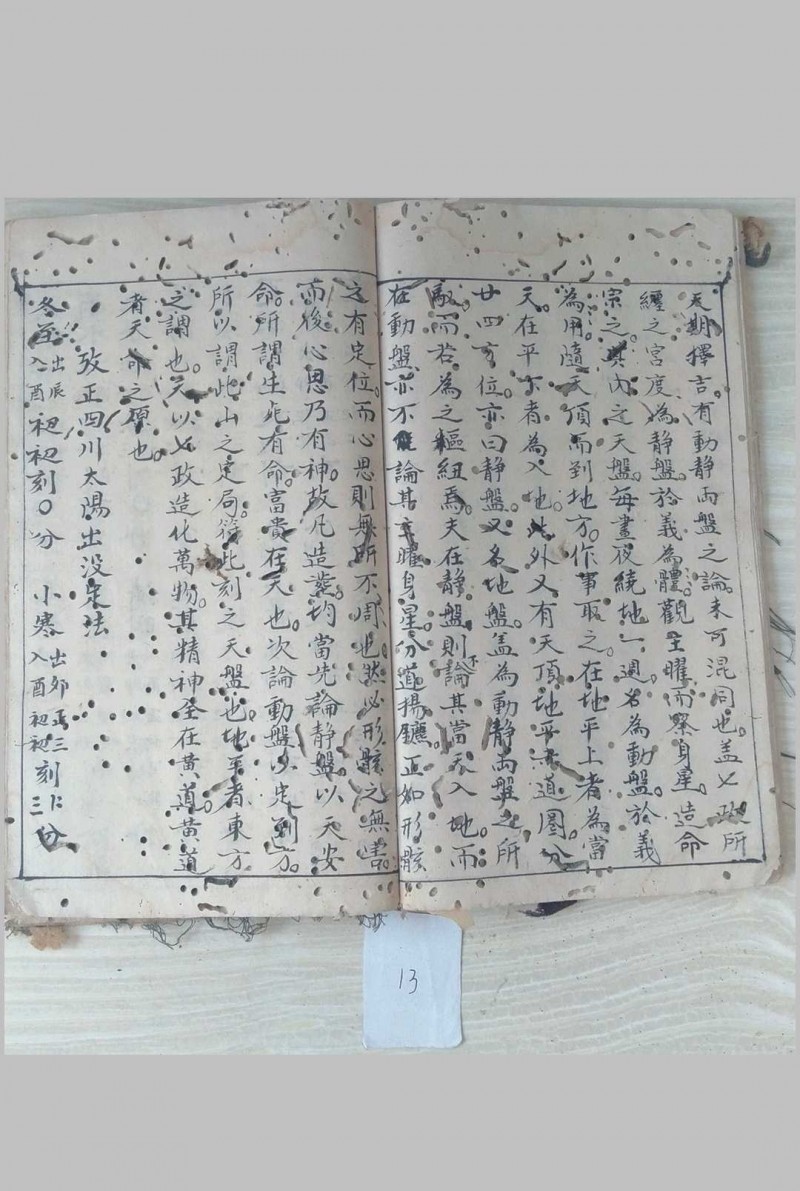 天期擇吉。有動靜兩盤之論。未可混同也。盖七政所
纏之宮度。為靜盤。於義為體。觀主曜而察身星。造命
宗之。其內之天盤。每晝夜繞地一週。名為動盤。於義
為用。隨天頂而到地方。作事取之。在地平上者為當
天。在平下者為入地。此外又有天頂地平赤道圈。分
廿四方位。亦曰靜盤。又名地盤。盖為動靜兩盤之所
而若為之樞紐焉。夫在靜盤。則不論其當天入地。而
在動盤亦不論其主曜身星。分道揚鑣。正如形骸
之有定位。而心思則無所不周也。然必形骸之無害。
而後心思乃有神。故凡造葬。均當先論靜盤。以天安
命。所謂生死有命。富貴在天也。次論動盤。以定到方。
所以謂此山之定局。符此刻之天盤也。地平者東方
之謂也。天以七政造化萬物。其精神全在黃道。黃道
者天命之原也。
攷正四川太陽出沒定法
冬至 出辰 入酉 初初刻〇分 小寒 出卯正三 入酉初初 刻 三 分
13